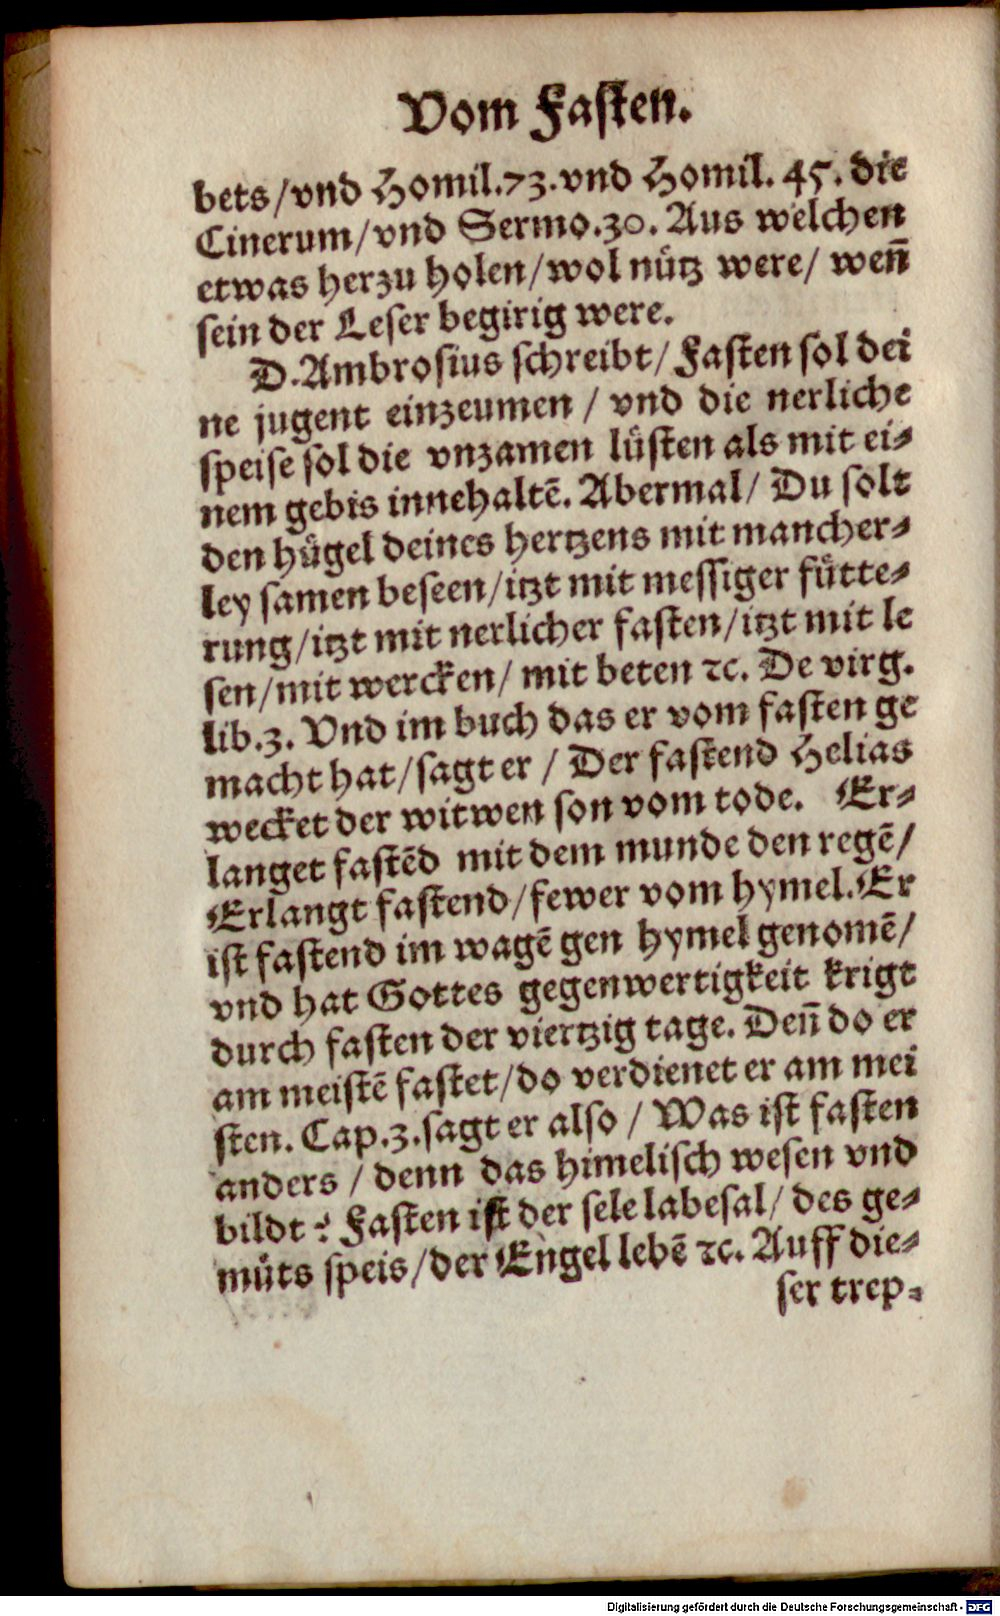 Vom Fasten.
bets/vnd Homil.73.vnd Homil. 45. die
Cinerum/vnd Sermo.30. Aus welchen
etwas herzu holen/wol nütz were/ weñ
sein der Leser begirig were.
D.Ambrosius schreibt/ Fasten sol dei
ne jugent einzeumen / vnd die nerliche
speise sol die vnzamen lüsten als mit ei⸗
nem gebis innehaltē. Abermal/ Du solt
den hügel deines hertzens mit mancher⸗
ley samen beseen/itzt mit messiger fütte⸗
rung/itzt mit nerlicher fasten/itzt mit le
sen/mit wercken/ mit beten ⁊c. De virg.
lib.3. Vnd im buch das er vom fasten ge
macht hat/sagt er / Der fastend Helias
wecket der witwen son vom tode. Er⸗
langet fastēd mit dem munde den regē/
Erlangt fastend/fewer vom hymel.Er
ist fastend im wagē gen hymel genomē/
vnd hat Gottes gegenwertigkeit krigt
durch fasten der viertzig tage. Deñ do er
am meistē fastet/do verdienet er am mei
sten. Cap.3.sagt er also / Was ist fasten
anders / denn das himelisch wesen vnd
bildt? Fasten ist der sele labesal/ des ge⸗
müts speis/der Engel lebē ⁊c. Auff die⸗
ser trep⸗
Digitalisierung gefördert durch die Deutsche Forschungsgemeinschaft - DFG